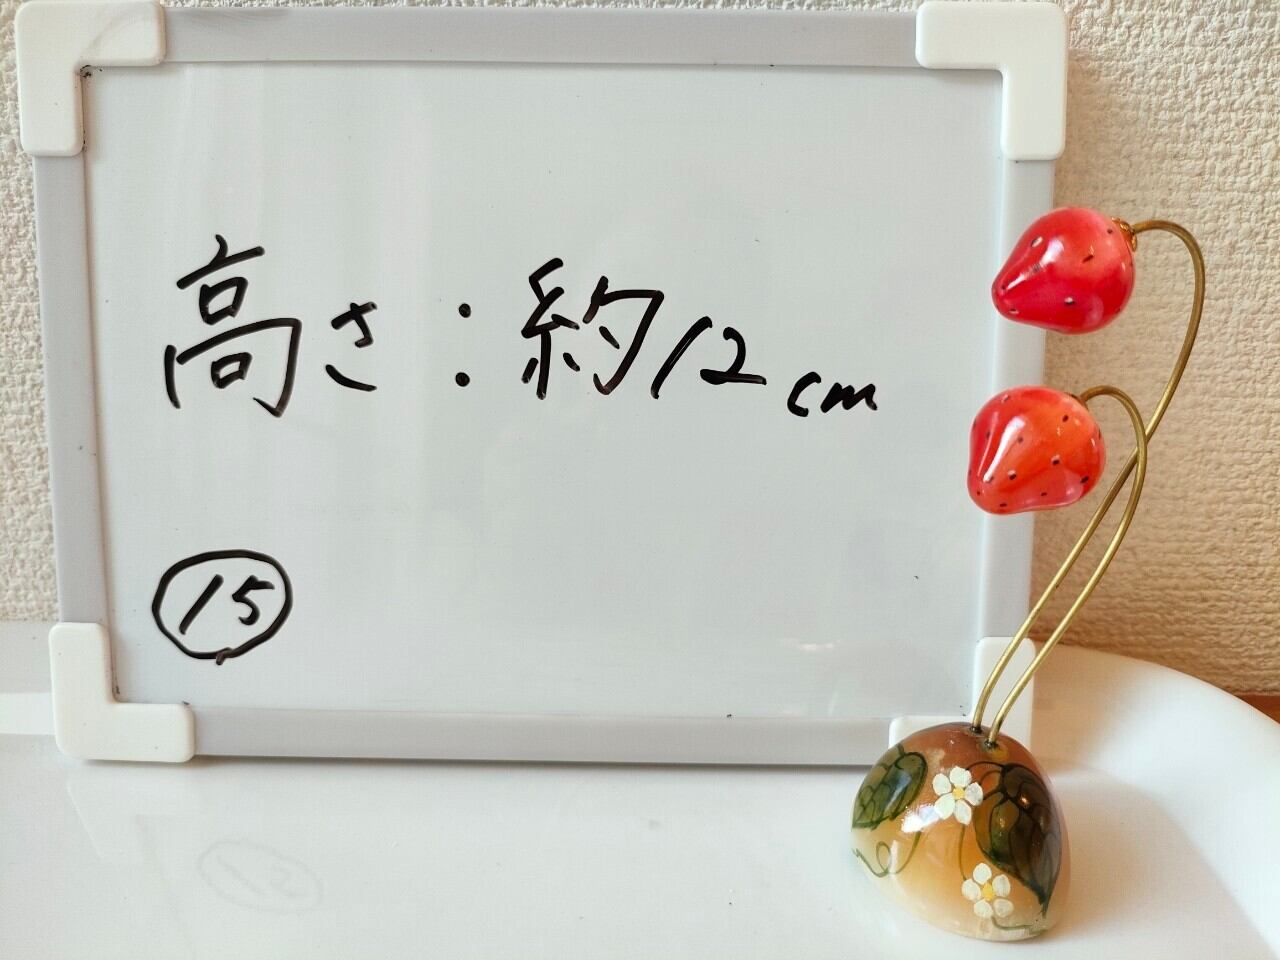 高さ：約12cm
⑮